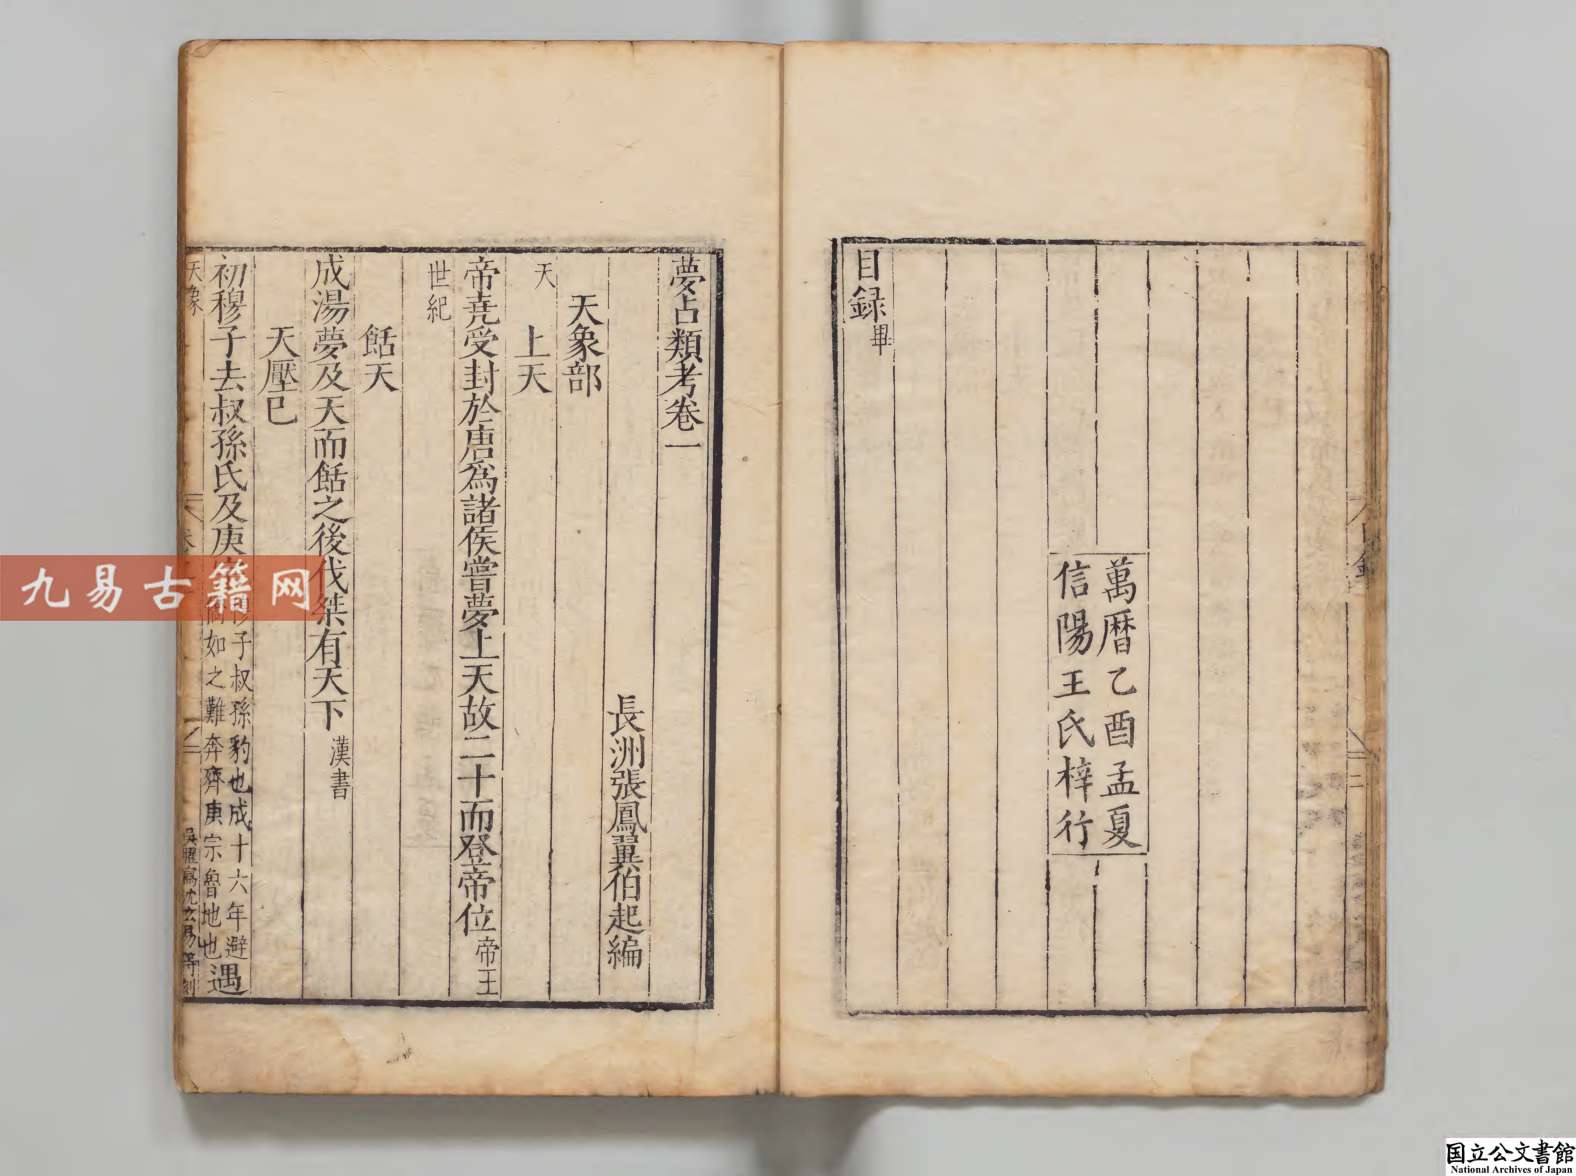 目録畢
萬暦乙酉孟夏
信陽王氏梓行
夢占類考卷一
長洲張鳳翼伯起編
天象部
上天
天
帝堯受封於唐為諸侯嘗夢上天故二十而登帝位帝王
世紀
餂天
成湯夢及天而餂之後伐桀有天下漢書
天壓己
初穆子去叔孫氏及庚
穆子叔孫豹也成十六年避
僑如之難奔齊庚宗魯地也
遇
天象
九易古籍网
国立公文書館
National Archives of Japan